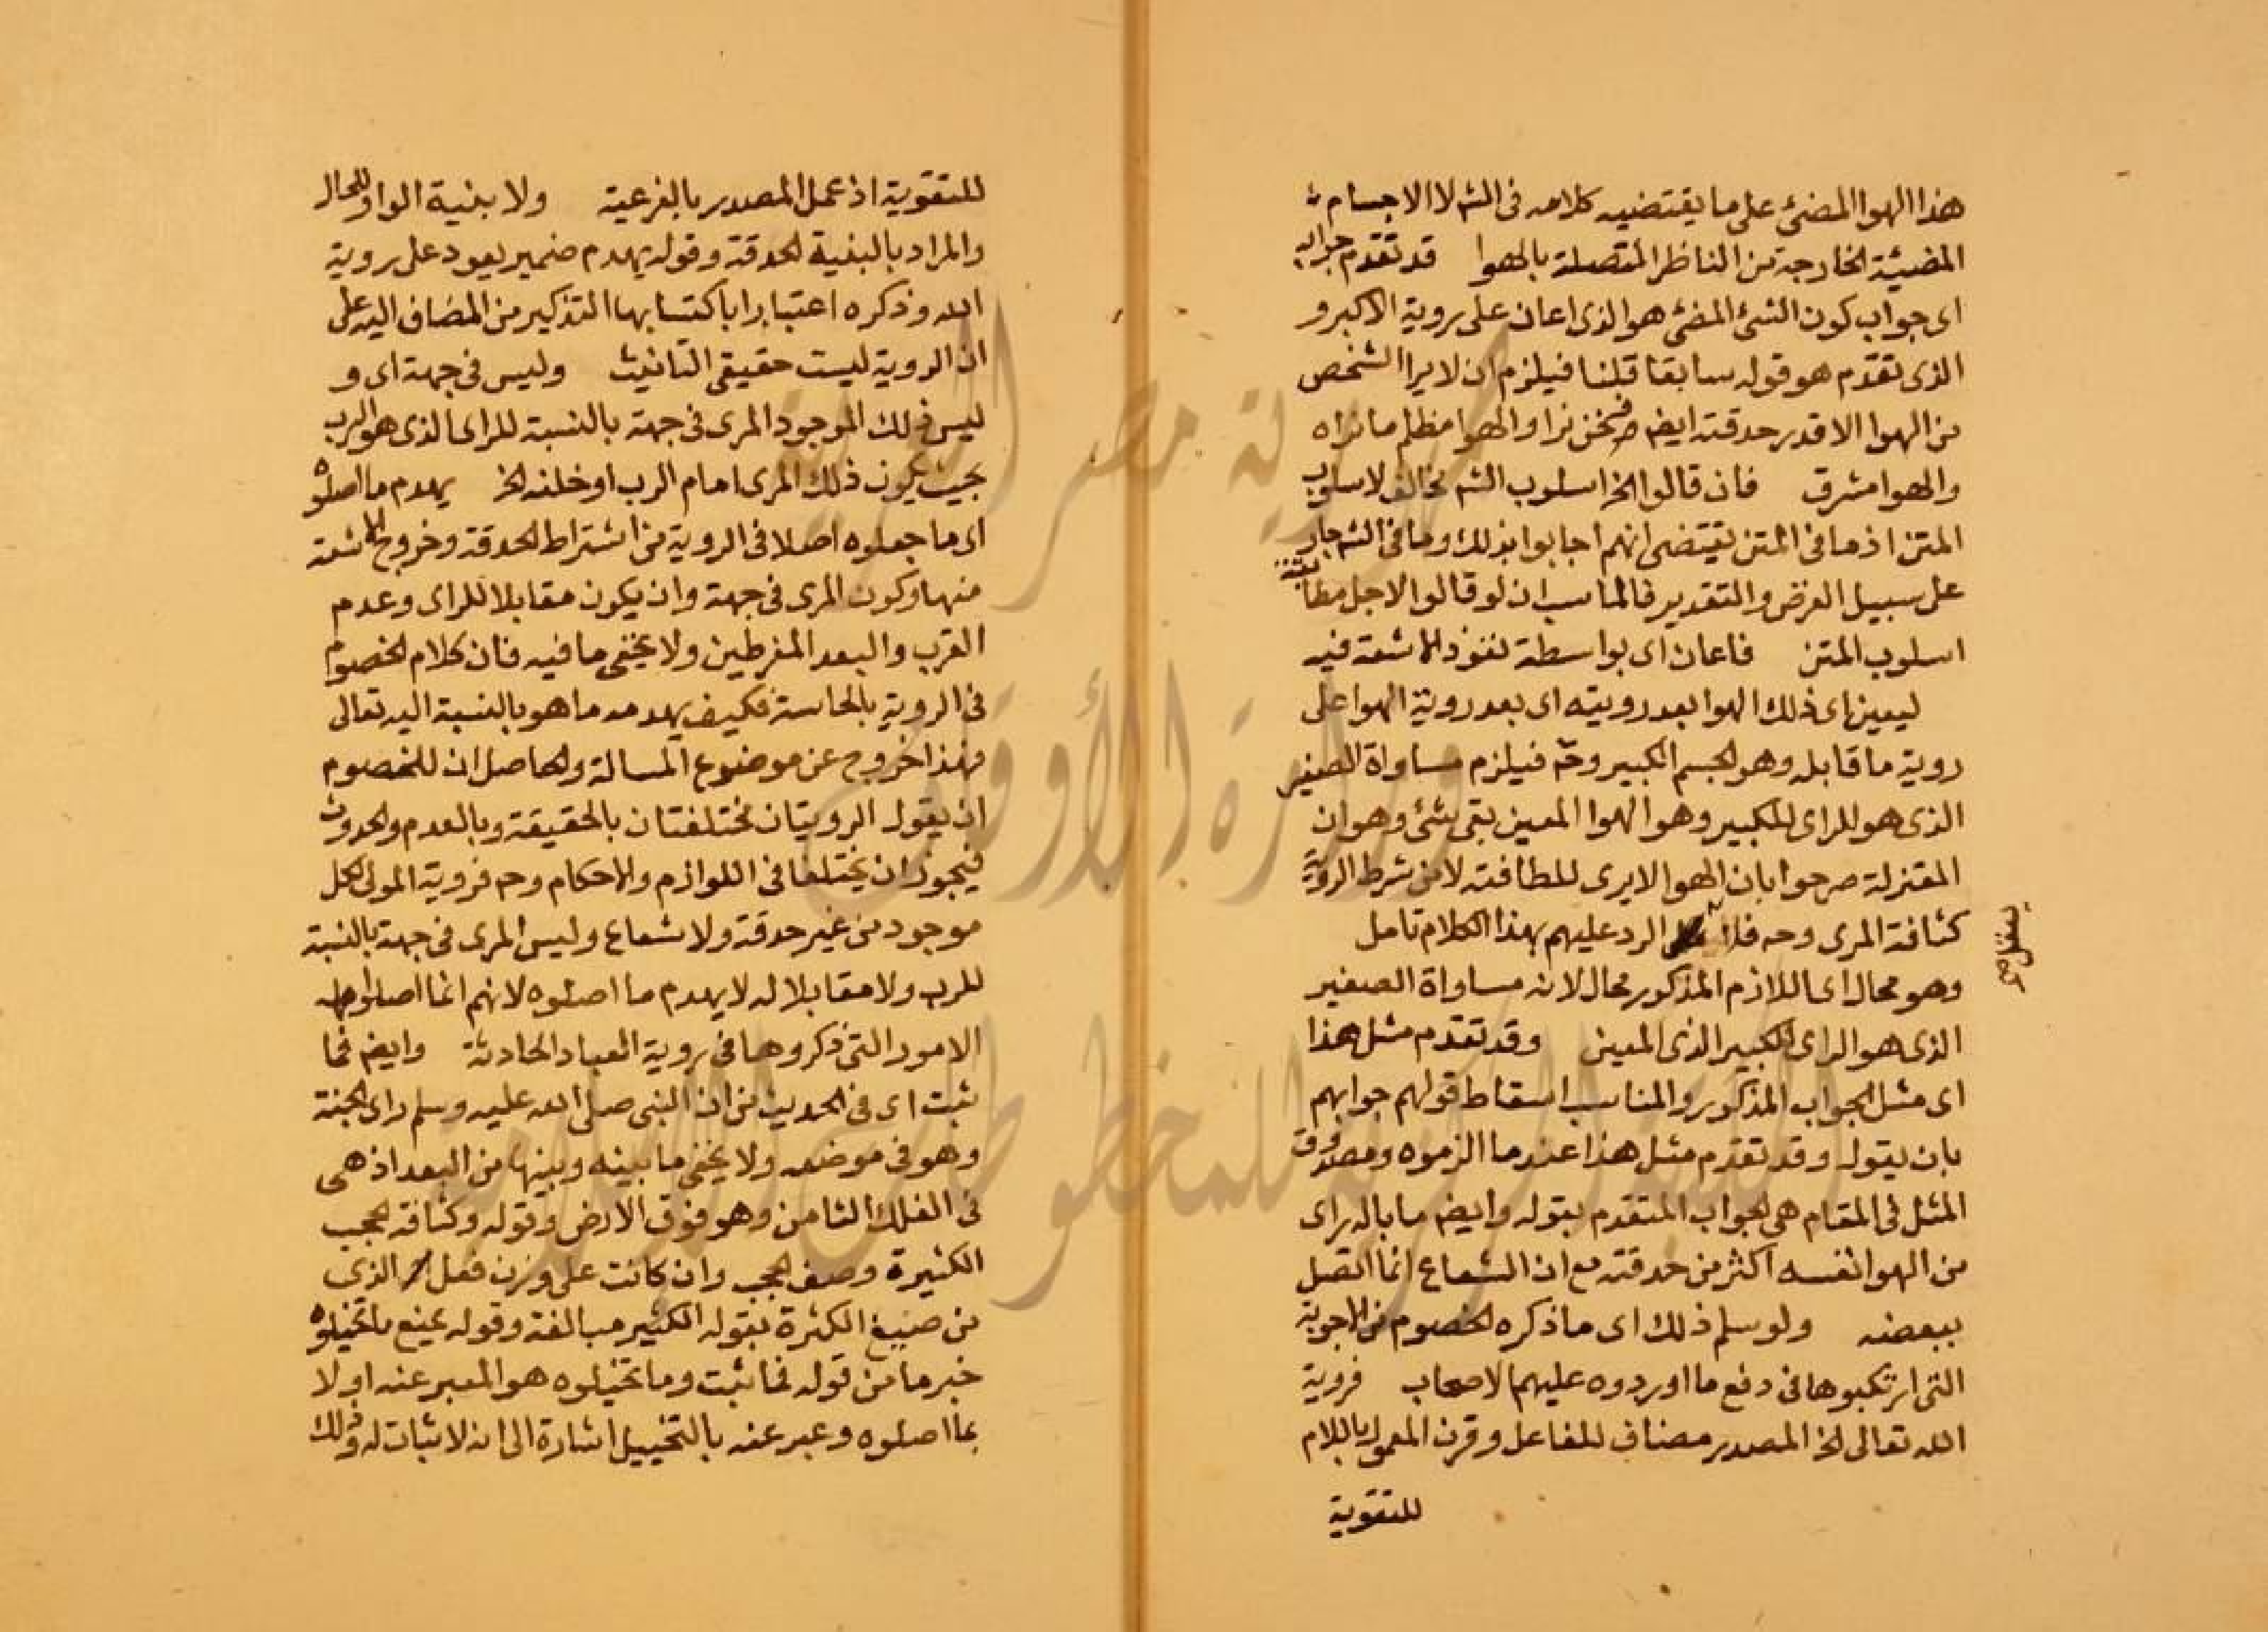 هذا الهوا المضئ على ما يقتضيه كلامه في الشـ لا الاجسام
المضيئة الخارجة من الناظر المتصلة بالهوا قد تقدم جوابه
اى جواب كون الشئ المضئ هو الذى اعان على روية الاكبر و
الذى تقدم هو قوله سابقا قلنا فيلزم ان لا يرا الشخص
من الهوا الا قدر حدقته ايضا فنحن نرا والهوا مظلم ما نراه
والهوا مشرق فان قالوا الخ اسلوب الشـ مخالف لاسلوب
المتن اذ ما فى المتن يقتضى انهم اجابوا بذلك وما فى الشـ جار
على سبيل الفرض والتقدير فالمناسب ان لو قالوا لاجل مطابقة
اسلوب المتن فاعان اى بواسطة نفوذ الاشعة فيه
ليعين اى ذلك الهوا بعد رويته اى بعد روية الهوا على
روية ما قابله وهو الجسم الكبير وحـ فيلزم مساواة الصغير
الذى هو للراى للكبير وهو الهوا المعين بقى شئ وهو ان
المعتزلة صرحوا بان الهوا لا يرى للطافته لان من شرط الروية
كثافة المرى وحـ فلا الرد عليهم بهذا الكلام تامل
يعقل صح
وهو محال اى اللازم المذكور محال لانه مساواة الصغير
الذى هو الراى للكبير الذى المعين وقد تقدم مثل هذا
اى مثل الجواب المذكور والمناسب اسقاط قولهم جوابهم
بان يقول وقد تقدم مثل هذا عند ما الزموه ومصدوق
المثل فى المقام هى الجواب المتقدم بقوله وايضا ما باله راى
من الهوا نفسه اكثر من حدقته مع ان الشعاع انما اتصل
ببعضه ولو سلم ذلك اى ما ذكره الخصوم من الاجوبة
التى ارتكبوها فى دفع ما اورد وه عليهم الاصحاب فروية
الله تعالى الخ المصدر مضاف للفاعل وقرن المعمول باللام
للتقوية
للتقوية اذ عمل المصدر بالفرعية ولا بنية الواو للحال
والمراد بالبنية الحدقة وقوله يهدم ضمير يعود على روية
الله وذكره اعتبارا باكتسابها التذكير من المضاف اليه على
ان الروية ليست حقيقى التانيث وليس فى جهة اى و
ليس ذلك الموجود المرى فى جهة بالنسبة للراى الذى هو الرب
بحيث يكون ذلك المرى امام الرب او خلفه الخ يهدم ما اصلوه
اى ما جعلوه اصلا فى الروية من اشتراط الحدقة وخروج الاشعة
منها وكون المرى فى جهة وان يكون مقابلا للراى وعدم
القرب والبعد المفرطين ولا يخفى ما فيه فان كلام الخصوم
فى الروية بالحاسة فكيف يهدمه ما هو بالنسبة اليه تعالى
فهذا خروج عن موضوع المسالة والحاصل ان للخصوم
ان يقول الرويتان مختلفتان بالحقيقة وبالعدم والحدوث
فيجوز ان يختلفا فى اللوازم والاحكام وحـ فروية المولى لكل
موجود من غير حدقة ولا شعاع وليس المرى فى جهة بالنسبة
للرب ولا مقابلا له لا يهدم ما اصلوه لانهم انما اصلوا هذه
الامور التى ذكروها فى روية العباد الحادثة وايضا فما
ثبت اى فى الحديث من ان النبى صلى الله عليه وسلم راى الجنة
وهو فى موضعه ولا يخفى ما بينه وبينها من البعد اذ هى
فى الفلك الثامن وهو فوق الارض وقوله وكثافة الحجب
الكثيرة وصف الحجب وان كانت على وزن فعل الذى
من صيغ الكثرة بقوله الكثير مبالغة وقوله يمنع ما تخيلوه
خبر ما من قوله فما ثبت وما تخيلوه هو المعبر عنه اولا
بما اصلوه وعبر عنه بالتخييل اشارة الى انه لا ثبات له وذلك